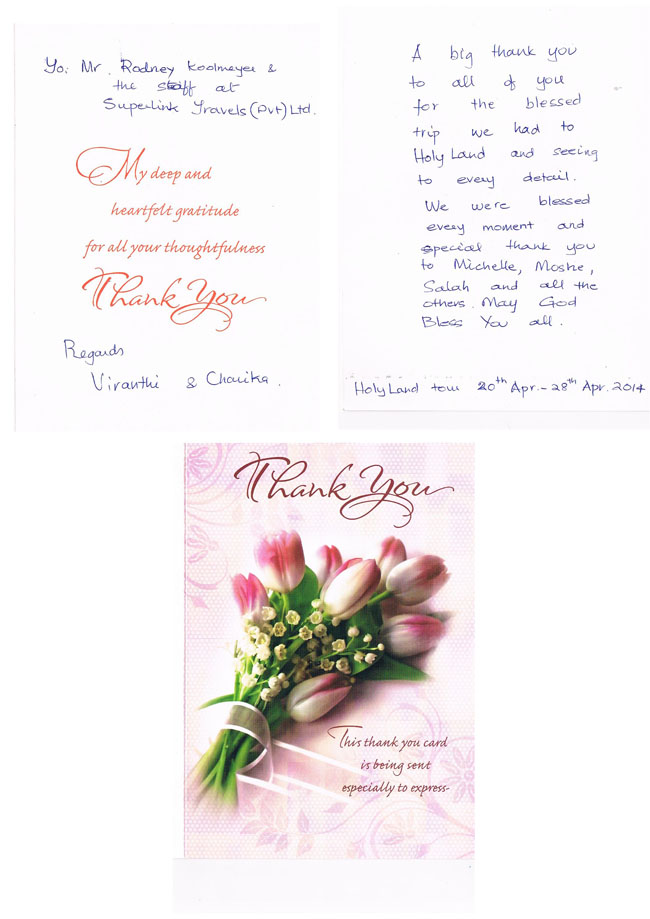 To: Mr. Rodney Koelmeyer &
the staff at
Superlink Travels (Pvt) Ltd.
My deep and
heartfelt gratitude
for all your thoughtfulness
Thank You
Regards
Viranthi & Charika.
A big thank you
to all of you
for the blessed
trip we had to
Holy Land and seeing
to every detail.
We were blessed
every moment and
special thank you
to Michelle, Moshe,
Salah and all the
others. May God
Bless You all.
Holy Land tour 20th Apr. - 28th Apr. 2014
Thank You
This thank you card
is being sent
especially to express-